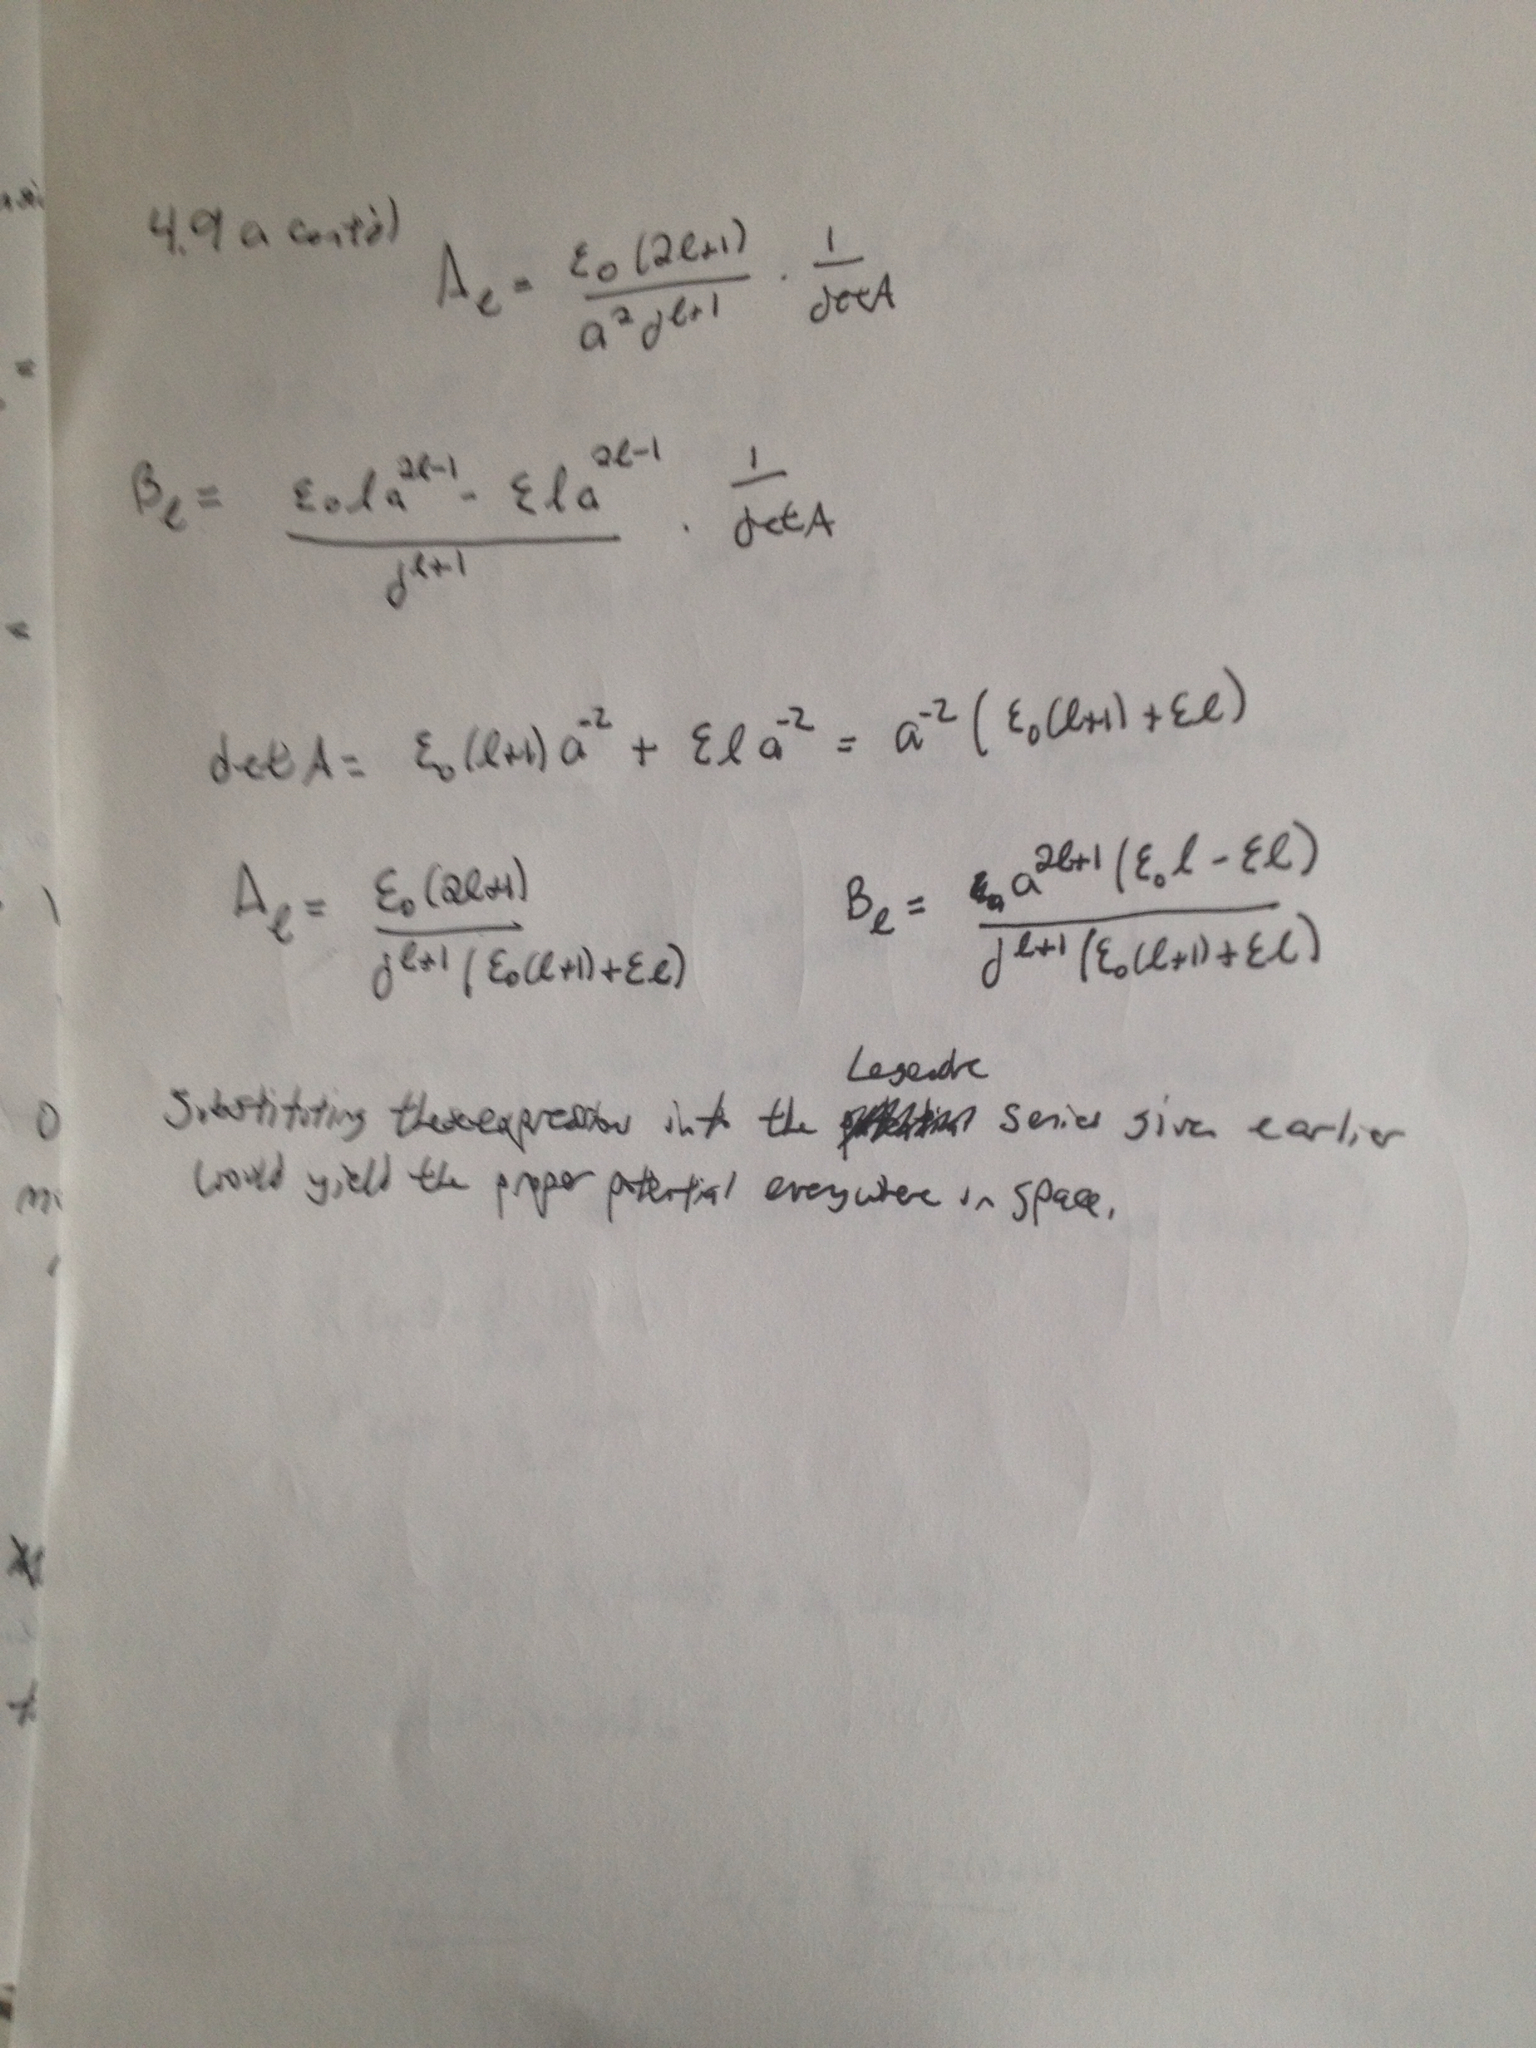 4.9 a cont'd)
A_ℓ = ε₀(2ℓ+1) / (a² d^(ℓ+1)) · 1 / det A
B_ℓ = (ε₀ ℓ a^(2ℓ-1) - ε ℓ a^(2ℓ-1)) / d^(ℓ+1) · 1 / det A
det A = ε₀(ℓ+1) a^(-2) + ε ℓ a^(-2) = a^(-2) (ε₀(ℓ+1) + εℓ)
A_ℓ = ε₀(2ℓ+1) / (d^(ℓ+1) (ε₀(ℓ+1)+εℓ))
B_ℓ = a^(2ℓ+1) (ε₀ℓ - εℓ) / (d^(ℓ+1) (ε₀(ℓ+1)+εℓ))
Substituting these expression into the Legendre series given earlier
would yield the proper potential everywhere in space.